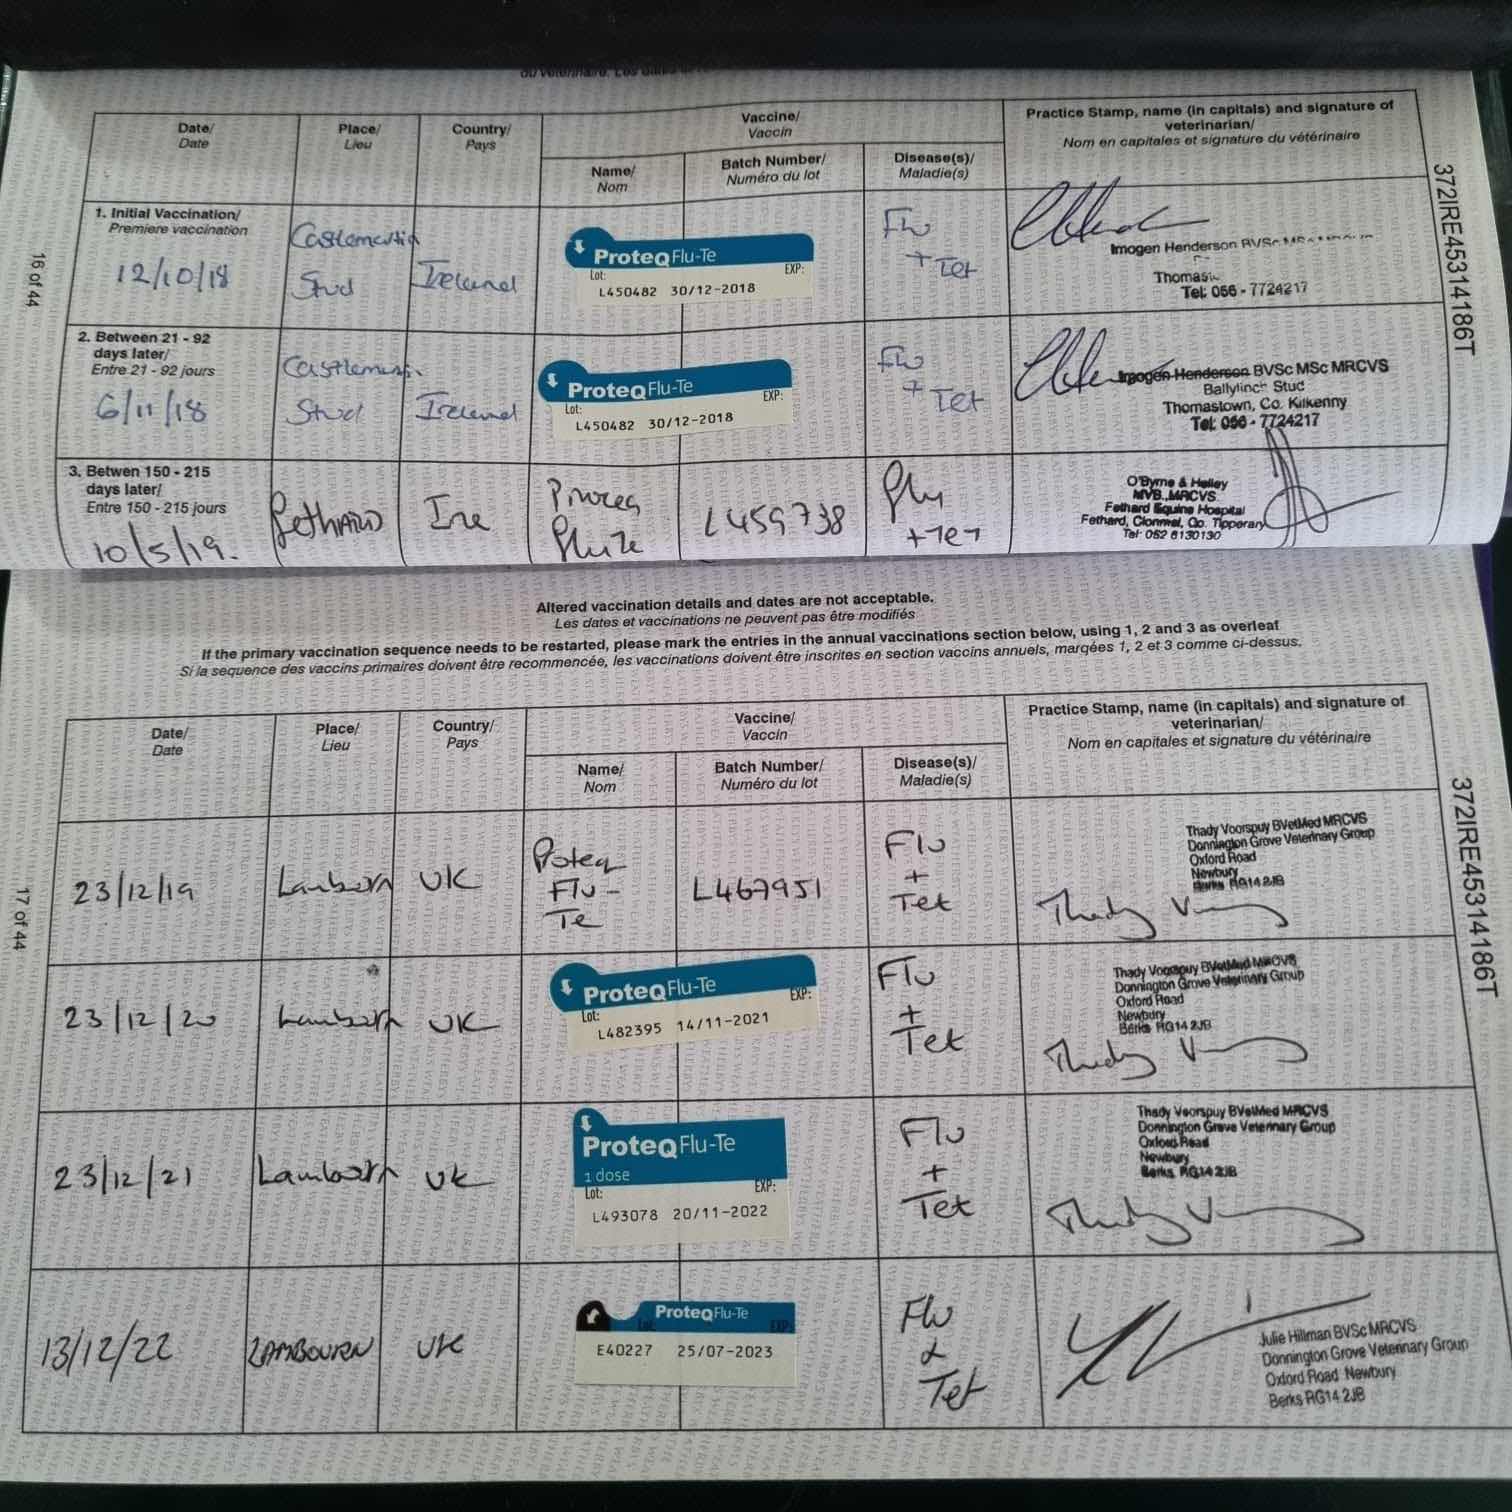 Date/
Date
Place/
Lieu
Country/
Pays
Vaccine/
Vaccin
Name/
Nom
Batch Number/
Numéro du lot
Disease(s)/
Maladie(s)
Practice Stamp, name (in capitals) and signature of
veterinarian/
Nom en capitales et signature du vétérinaire
16 of 44
372IRE45314186T
1. Initial Vaccination/
Premiere vaccination
12/10/18
Castlemartin
Stud
Ireland
ProteqFlu-Te
Lot:
EXP:
L450482 30/12-2018
Flu
+ Tet
Imogen Henderson BVSc
Tel: 056 - 7724217
2. Between 21 - 92
days later/
Entre 21 - 92 jours
6/11/18
Stud
Ireland
ProteqFlu-Te
Lot:
EXP:
L450482 30/12-2018
Flu
+ Tet
Imogen Henderson BVSc MSc MRCVS
Ballylinch Stud
Thomastown, Co. Kilkenny
Tel: 056 - 7724217
3. Betwen 150 - 215
days later/
Entre 150 - 215 jours
10/5/19.
Fethard
Ire
L459738
Flu
+Tet
O'Byrne & Halley
MVB.,MRCVS
Fethard Equine Hospital
Fethard, Clonmel, Co. Tipperary
Tel: 052 6130130
Altered vaccination details and dates are not acceptable.
Les dates et vaccinations ne peuvent pas être modifiés
If the primary vaccination sequence needs to be restarted, please mark the entries in the annual vaccinations section below, using 1, 2 and 3 as overleaf
Si la sequence des vaccins primaires doivent être recommencée, les vaccinations doivent être inscrites en section vaccins annuels, marqées 1, 2 et 3 comme ci-dessus.
Date/
Date
Place/
Lieu
Country/
Pays
Vaccine/
Vaccin
Name/
Nom
Batch Number/
Numéro du lot
Disease(s)/
Maladie(s)
Practice Stamp, name (in capitals) and signature of
veterinarian/
Nom en capitales et signature du vétérinaire
17 of 44
372IRE45314186T
23/12/19
Lambourn
UK
Proteq
Flu-
Te
L467951
Flu
+
Tet
Thady Voorspuy BVetMed MRCVS
Donnington Grove Veterinary Group
Oxford Road
Newbury
Berks RG14 2JB
23/12/20
Lambourn
UK
ProteqFlu-Te
Lot:
EXP:
L482395 14/11-2021
Flu
+
Tet
Thady Voorspuy BVetMed MRCVS
Donnington Grove Veterinary Group
Oxford Road
Newbury
Berks RG14 2JB
23/12/21
Lambourn
UK
ProteqFlu-Te
1 dose
Lot:
EXP:
L493078 20/11-2022
Flu
+
Tet
Thady Voorspuy BVetMed MRCVS
Donnington Grove Veterinary Group
Oxford Road
Newbury
Berks RG14 2JB
13/12/22
LAMBOURN
UK
ProteqFlu-Te
Lot:
EXP:
E40227 25/07-2023
Flu
&
Tet
Julie Hillman BVSc MRCVS
Donnington Grove Veterinary Group
Oxford Road Newbury
Berks RG14 2JB